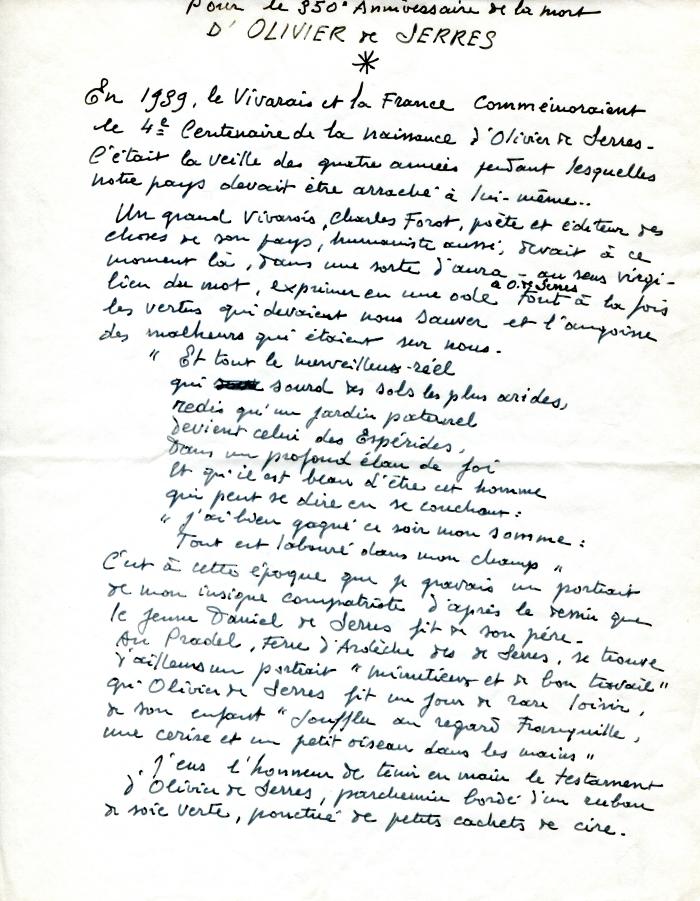 Pour le 350e Anniversaire de la mort
D'OLIVIER de SERRES
*
En 1939, le Vivarais et la France Commémoraient
le 4e Centenaire de la naissance d'Olivier de Serres.
C'était la veille des quatre années pendant lesquelles
notre pays devait être arraché à lui-même..
Un grand Vivarois, Charles Forot, poète et éditeur des
choses de son pays, humaniste aussi, devait à ce
moment là, dans une sorte d'aura - au sens virgi-
lien du mot, exprimer en une ode à O. de Serres tout à la fois
les vertus qui devaient nous sauver et l'angoisse
des malheurs qui étaient sur nous.
" Et tout le merveilleux-réel
qui sourd des sols les plus arides,
redis qu'un jardin paternel
devient celui des Espérides,
Dans un profond élan de foi
Et qu'il est beau d'être cet homme
qui peut se dire en se couchant :
" j'ai bien gagné ce soir mon somme :
Tout est labouré dans mon champ "
C'est à cette époque que je gravais un portrait
de mon insigne compatriote d'après le dessin que
le jeune Daniel de Serres fit de son père.
Au Pradel, Terre d'Ardèche des de Serres, se trouve
d'ailleurs un portrait " minutieux et de bon travail "
qu'Olivier de Serres fit un jour de rare loisir,
de son enfant " au regard Tranquille,
une cerise et un petit oiseau dans les mains "
J'eus l'honneur de tenir en main le testament
d'Olivier de Serres, parchemin bordé d'un ruban
de soie verte, ponctué de petits cachets de cire.